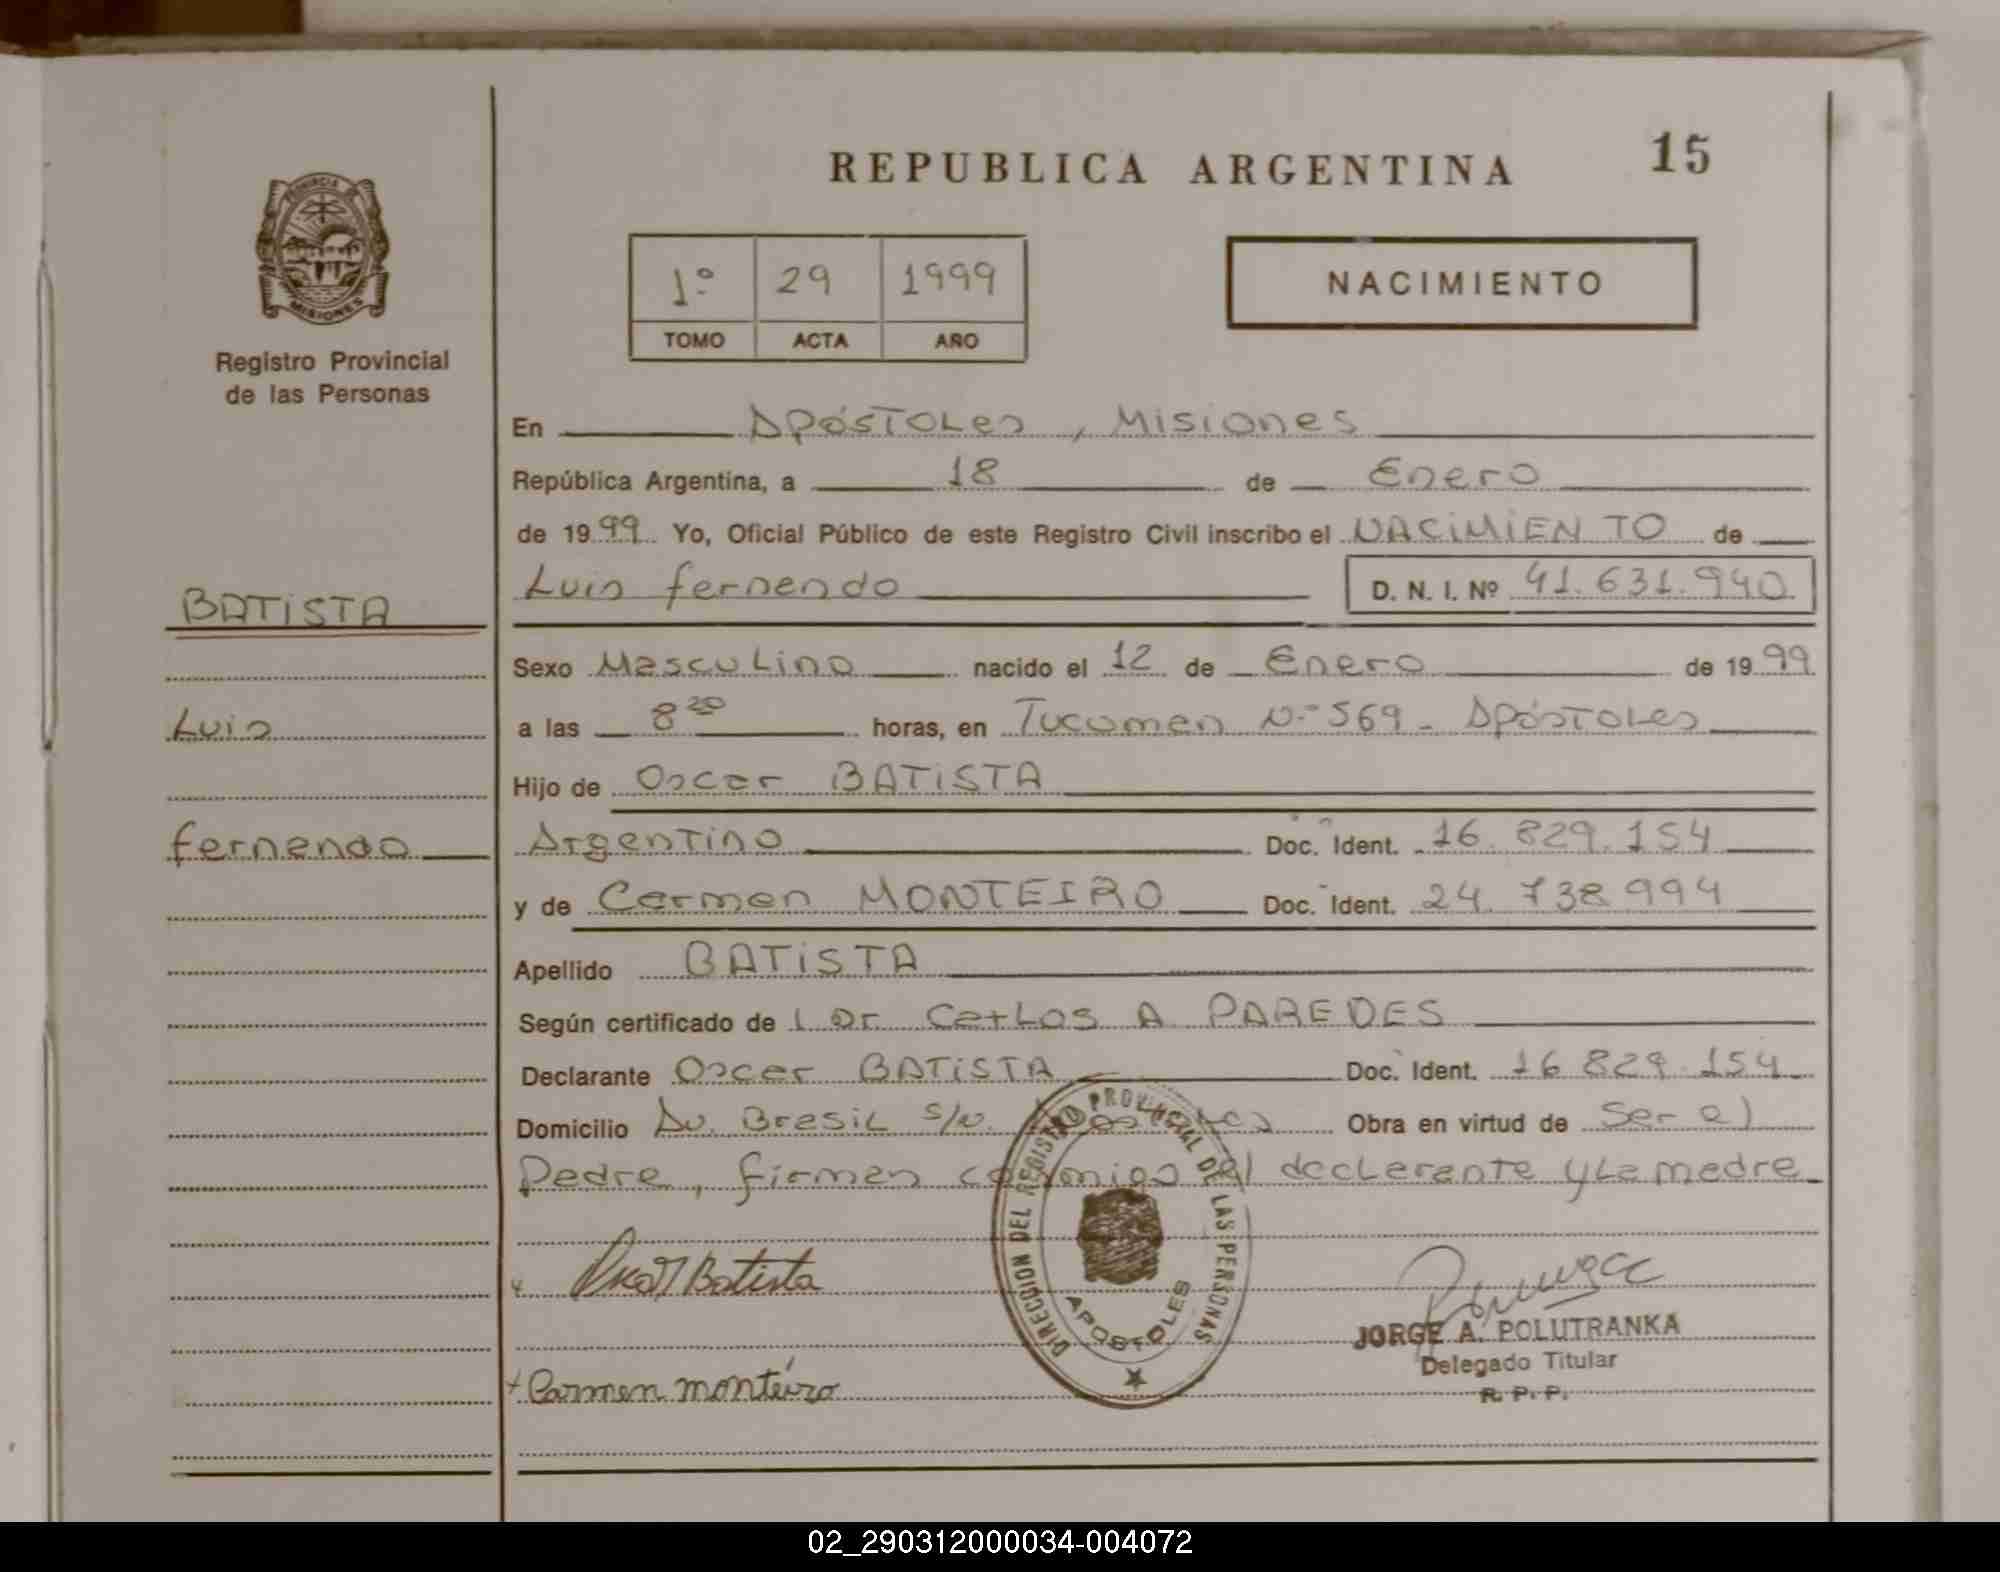 REPUBLICA ARGENTINA
15
PROVINCIA DE
MISIONES
Registro Provincial
de las Personas
1º 29 1999
TOMO ACTA AÑO
NACIMIENTO
En Apóstoles, Misiones
República Argentina, a 18 de Enero
de 1999 Yo, Oficial Público de este Registro Civil inscribo el NACIMIENTO de
Luis fernando D. N. I. Nº 41.631.940
BATISTA
Sexo Masculino nacido el 12 de Enero de 1999
Luis
a las 8 20 horas, en Tucuman Nº 569 - Apóstoles
Hijo de Oscar BATISTA
fernando
Argentino Doc. Ident. 16.829.154
y de Carmen MONTEIRO Doc. Ident. 24.738.994
Apellido BATISTA
Según certificado de l Dr Carlos A PAREDES
Declarante Oscar BATISTA Doc. Ident. 16.829.154
Domicilio Av. Brasil s/n. Obra en virtud de ser el
Padre, firman conmigo el declarante y la madre
DIRECCION DEL REGISTRO PROVINCIAL DE LAS PERSONAS
APOSTOLES
Oscar Batista
JORGE A. POLUTRANKA
Delegado Titular
R. P. P.
Carmen monteiro
02_290312000034-004072